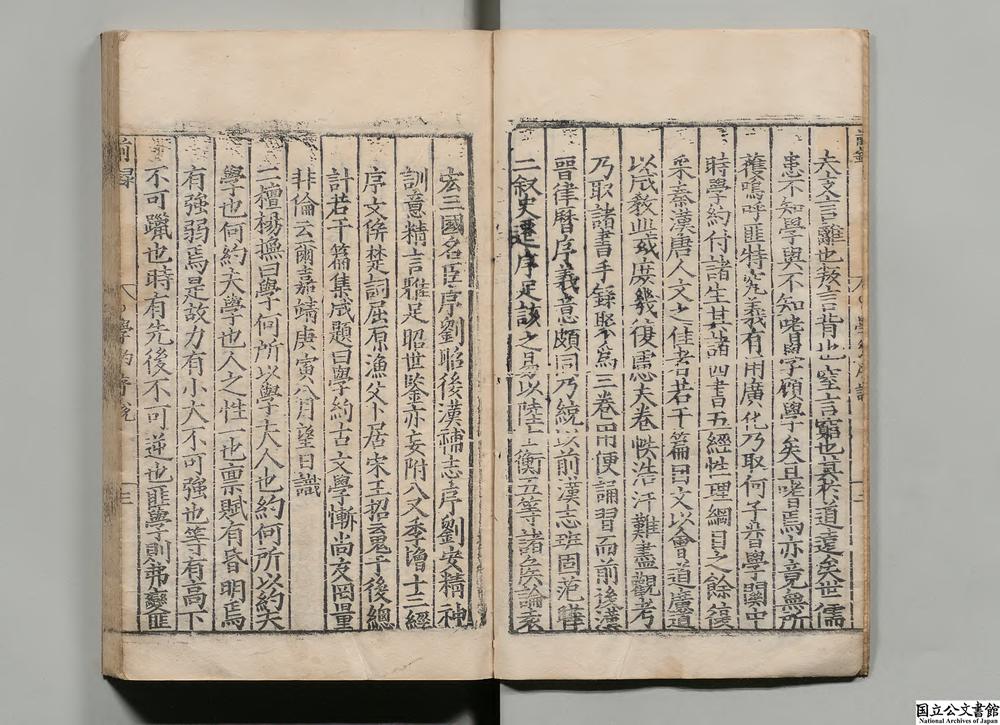 夫支言離也敖言肯也窒言窮也哀哉道遠矣世儒
患不知學與不知啫學顧學矣旦啫焉亦竟無所
蒦嗚呼匪特究義有用廣化乃取何子昔學關中
時學約付諸生其諸四書五經性理綱目之餘復
采秦漢唐人文之佳者若干篇曰文以會道廣道
以成教豈或庶幾復慮夫卷帙浩汗難盡觀考
乃取諸書手録聚為三卷用便誦習而前後漢
晉律曆序義意頗同乃統以前漢志班固范曄
二叙史遷序足該之易以陸士衡五等諸侯論袁
宏三國名臣序劉昭後漢補志序劉安精神
訓意精言雅足昭世鑒亦妄附入又季增十三經
序文俟楚詞屈原漁父卜居宋玉招䰟于後總
計若干篇集成題曰學約古文學慚尚友罔量
非倫云爾嘉靖庚寅八月望日識
二檀楊撫曰學何所以學夫人也約何所以約夫
學也何約夫學也人之性一也禀賦有昏明焉
有強弱焉是故力有小大不可強也等有高下
不可躐也時有先後不可逆也匪學則弗變匪
國立公文書館
National Archives of Japan